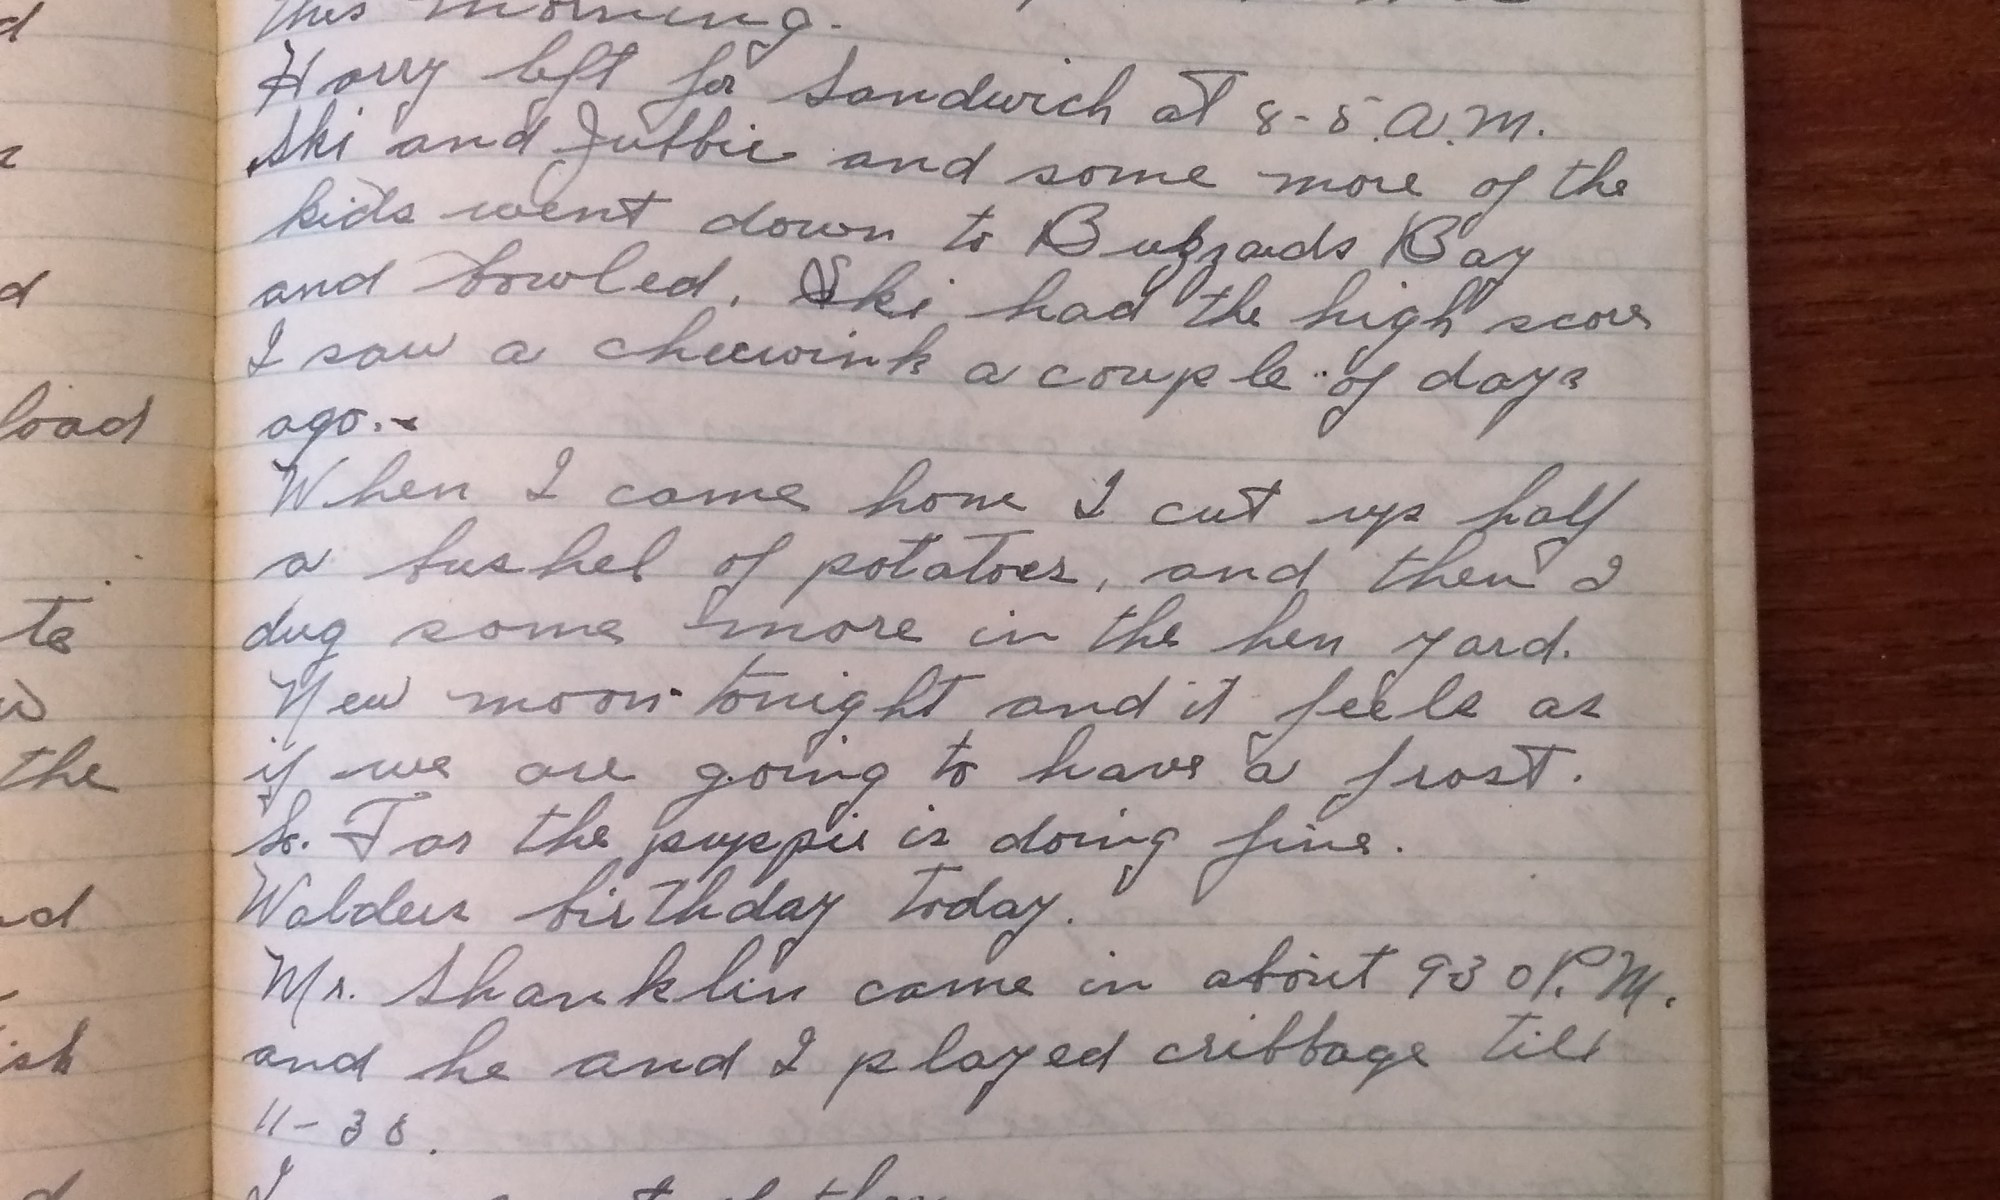 this morning.
Harry left for Sandwich at 8-5 A.M.
Ski and Jubbie and some more of the
kids went down to Buzzards Bay
and bowled. Ski had the high score
I saw a cheewink a couple of days
ago.-
When I came home I cut up half
a bushel of potatoes, and then I
dug some more in the hen yard.
New moon tonight and it feels as
if we are going to have a frost.
So. Far the puppie is doing fine.
Waldens birthday today.
Mr. Shanklin came in about 930 P.M.
and he and I played cribbage till
11-30.
load
to
the